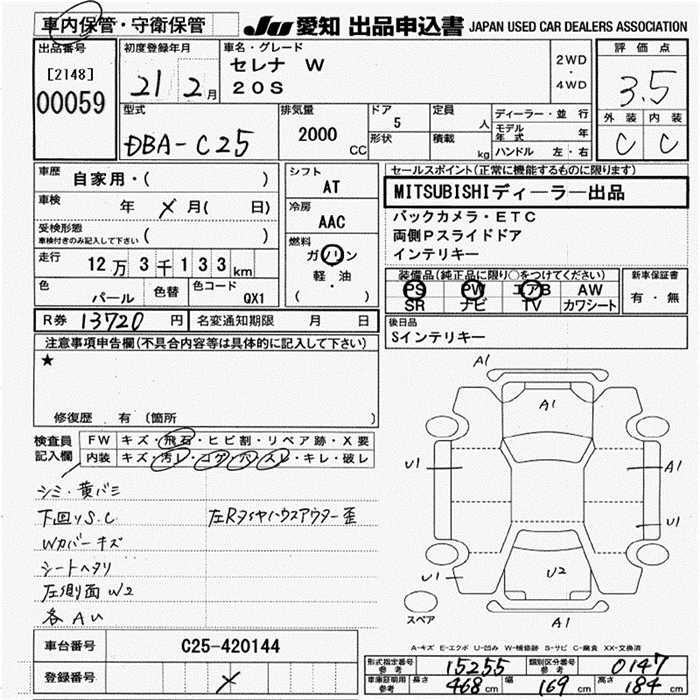 車内保管・守衛保管
JU 愛知 出品申込書 JAPAN USED CAR DEALERS ASSOCIATION
出品番号
[2148]
00059
初度登録年月
21 2月
車名・グレード
セレナ W
20S
2WD
・
4WD
評価点
3.5
外装 内装
C C
型式
DBA-C25
排気量
2000
CC
ドア
5
形状
定員
人
積載
kg
ディーラー・並行
モデル年式 年
ハンドル 左・右
車歴
自家用・( )
車検
年 × 月( 日)
受検形態
車検付きのみ記入して下さい ( )
走行
12万3千133km
色
パール
色替
色コード
QX1
シフト
AT
冷房
AAC
燃料
ガソリン
軽・油
( )
セールスポイント(正常に機能するものに限ります)
MITSUBISHIディーラー出品
バックカメラ・ETC
両側Pスライドドア
インテリキー
装備品(純正品に限り○をつけてください)
PS PW エアB AW
SR ナビ TV カワシート
新車保証書
有・無
R券 13720 円
名変通知期限 月 日
後日品
Sインテリキー
注意事項申告欄(不具合内容等は具体的に記入して下さい)
★
修復歴 有 (箇所 )
検査員記入欄
FW キズ・飛石・ヒビ割・リペア跡・X要
内装 キズ・汚レ・コゲ・穴・スレ・キレ・破レ
シミ・黄バミ
下回りS.C
左Rタイヤハウスアウター歪
Wカバーキズ
シートヘタリ
左側面W2
各AU
A1
A1
U1
A1
U1
U1
U2
A1
スペア
A-キズ E-エクボ U-凹み W-補修跡 S-サビ C-腐食 XX-交換済
車台番号
C25-420144
登録番号
×
形式指定番号
参考
15255
類別区分番号
参考
0147
車庫証明用
参考
長さ 468 cm 幅 169 cm 高さ 184 cm